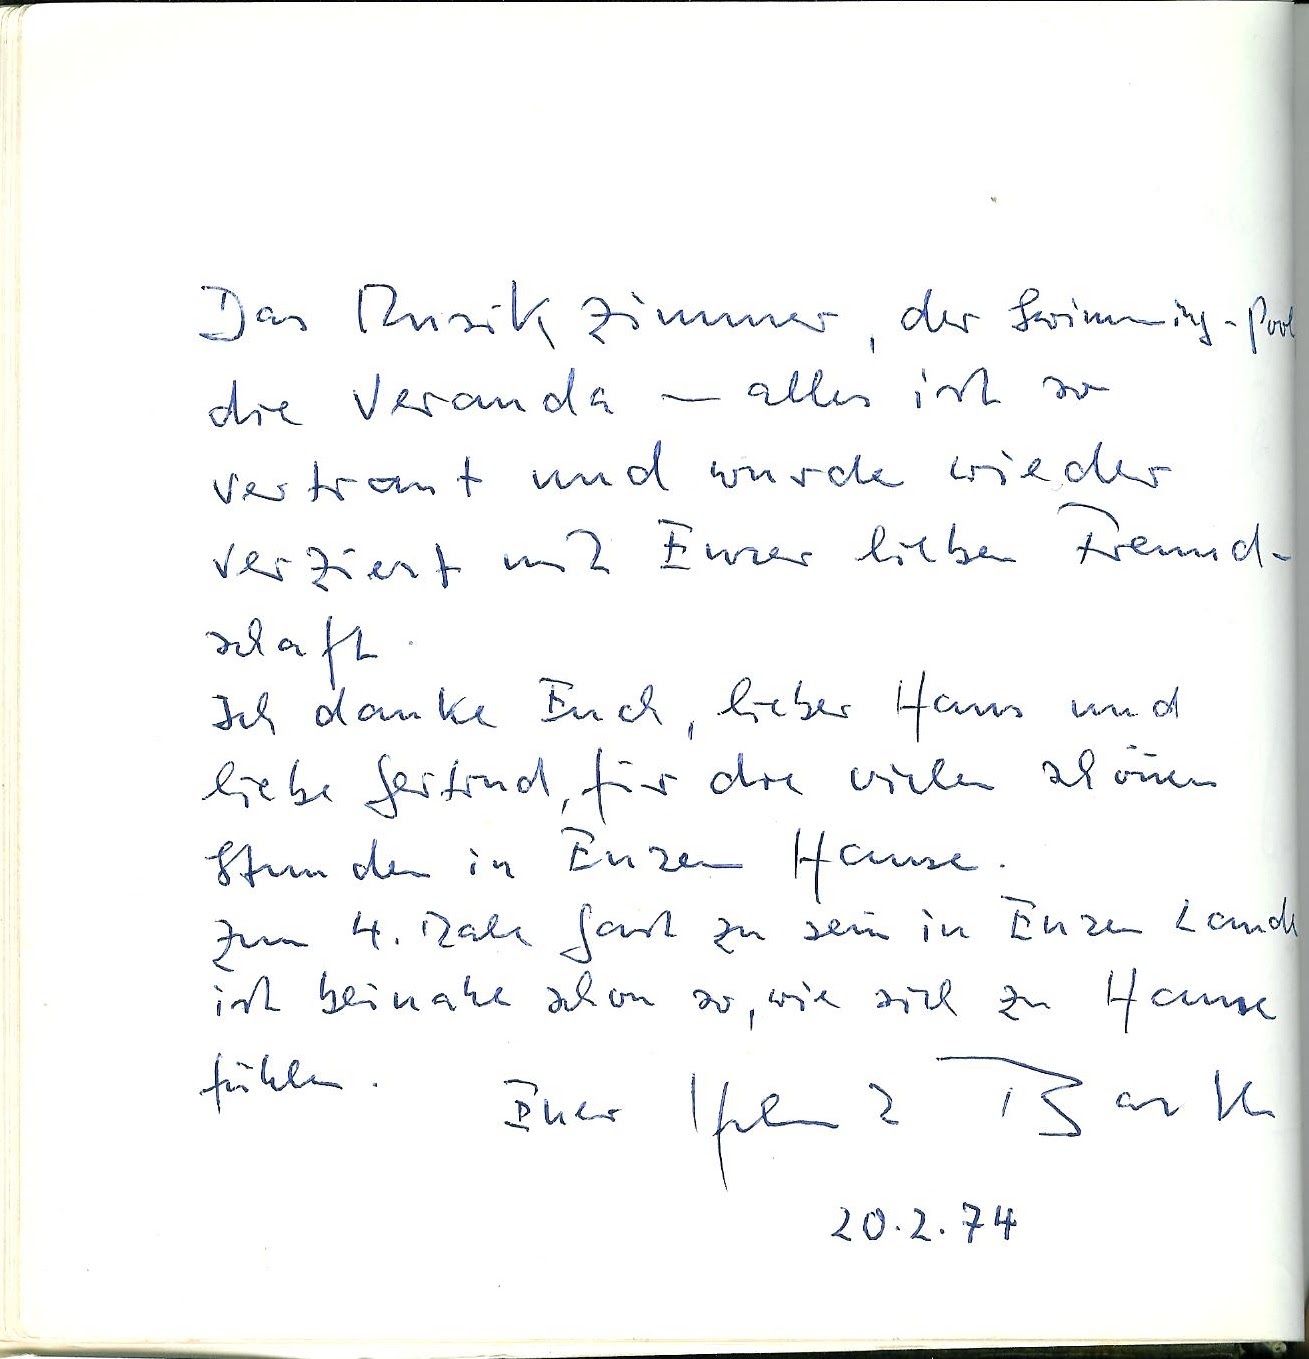 Das Musikzimmer, der Swimming-Pool
die Veranda – alles ist so
vertraut und wurde wieder
verziert mit Eurer lieben Freund-
schaft.
Ich danke Euch, lieber Hans und
liebe Gertrud, für die vielen schönen
Stunden in Eurem Hause.
Zum 4. Male Gast zu sein in Eurem Lande
ist beinahe schon so, wie sich zu Hause
fühlen.
Euer
20.2.74